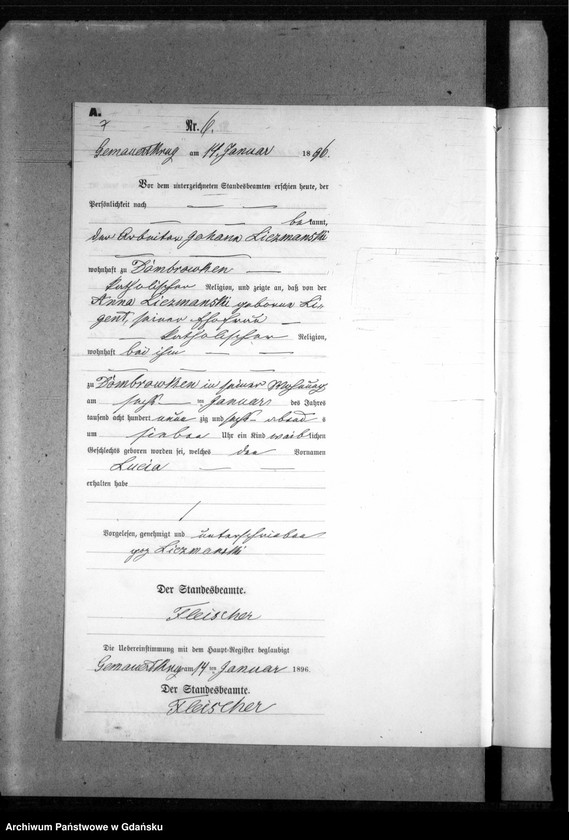 A.
7
Nr. 6.
Gemauert Krug am 14. Januar 1896.
Vor dem unterzeichneten Standesbeamten erschien heute, der
Persönlichkeit nach
bekannt,
der Arbeiter Johann Liczmanski
wohnhaft zu Dombrowken
katholischer Religion, und zeigte an, daß von der
Anna Liczmanski geborene Li-
gent, seiner Ehefrau
katholischer Religion,
wohnhaft bei ihm
zu Dombrowken in seiner Wohnung
am sechsten Januar des Jahres
tausend acht hundert neunzig und sechs abends
um sieben Uhr ein Kind weiblichen
Geschlechts geboren worden sei, welches den Vornamen
Lucia
erhalten habe
Vorgelesen, genehmigt und unterschrieben
gez Liczmanski
Der Standesbeamte.
Fleischer
Die Uebereinstimmung mit dem Haupt-Register beglaubigt
Gemauert Krug am 14 ten Januar 1896.
Der Standesbeamte.
Fleischer
Archiwum Państwowe w Gdańsku